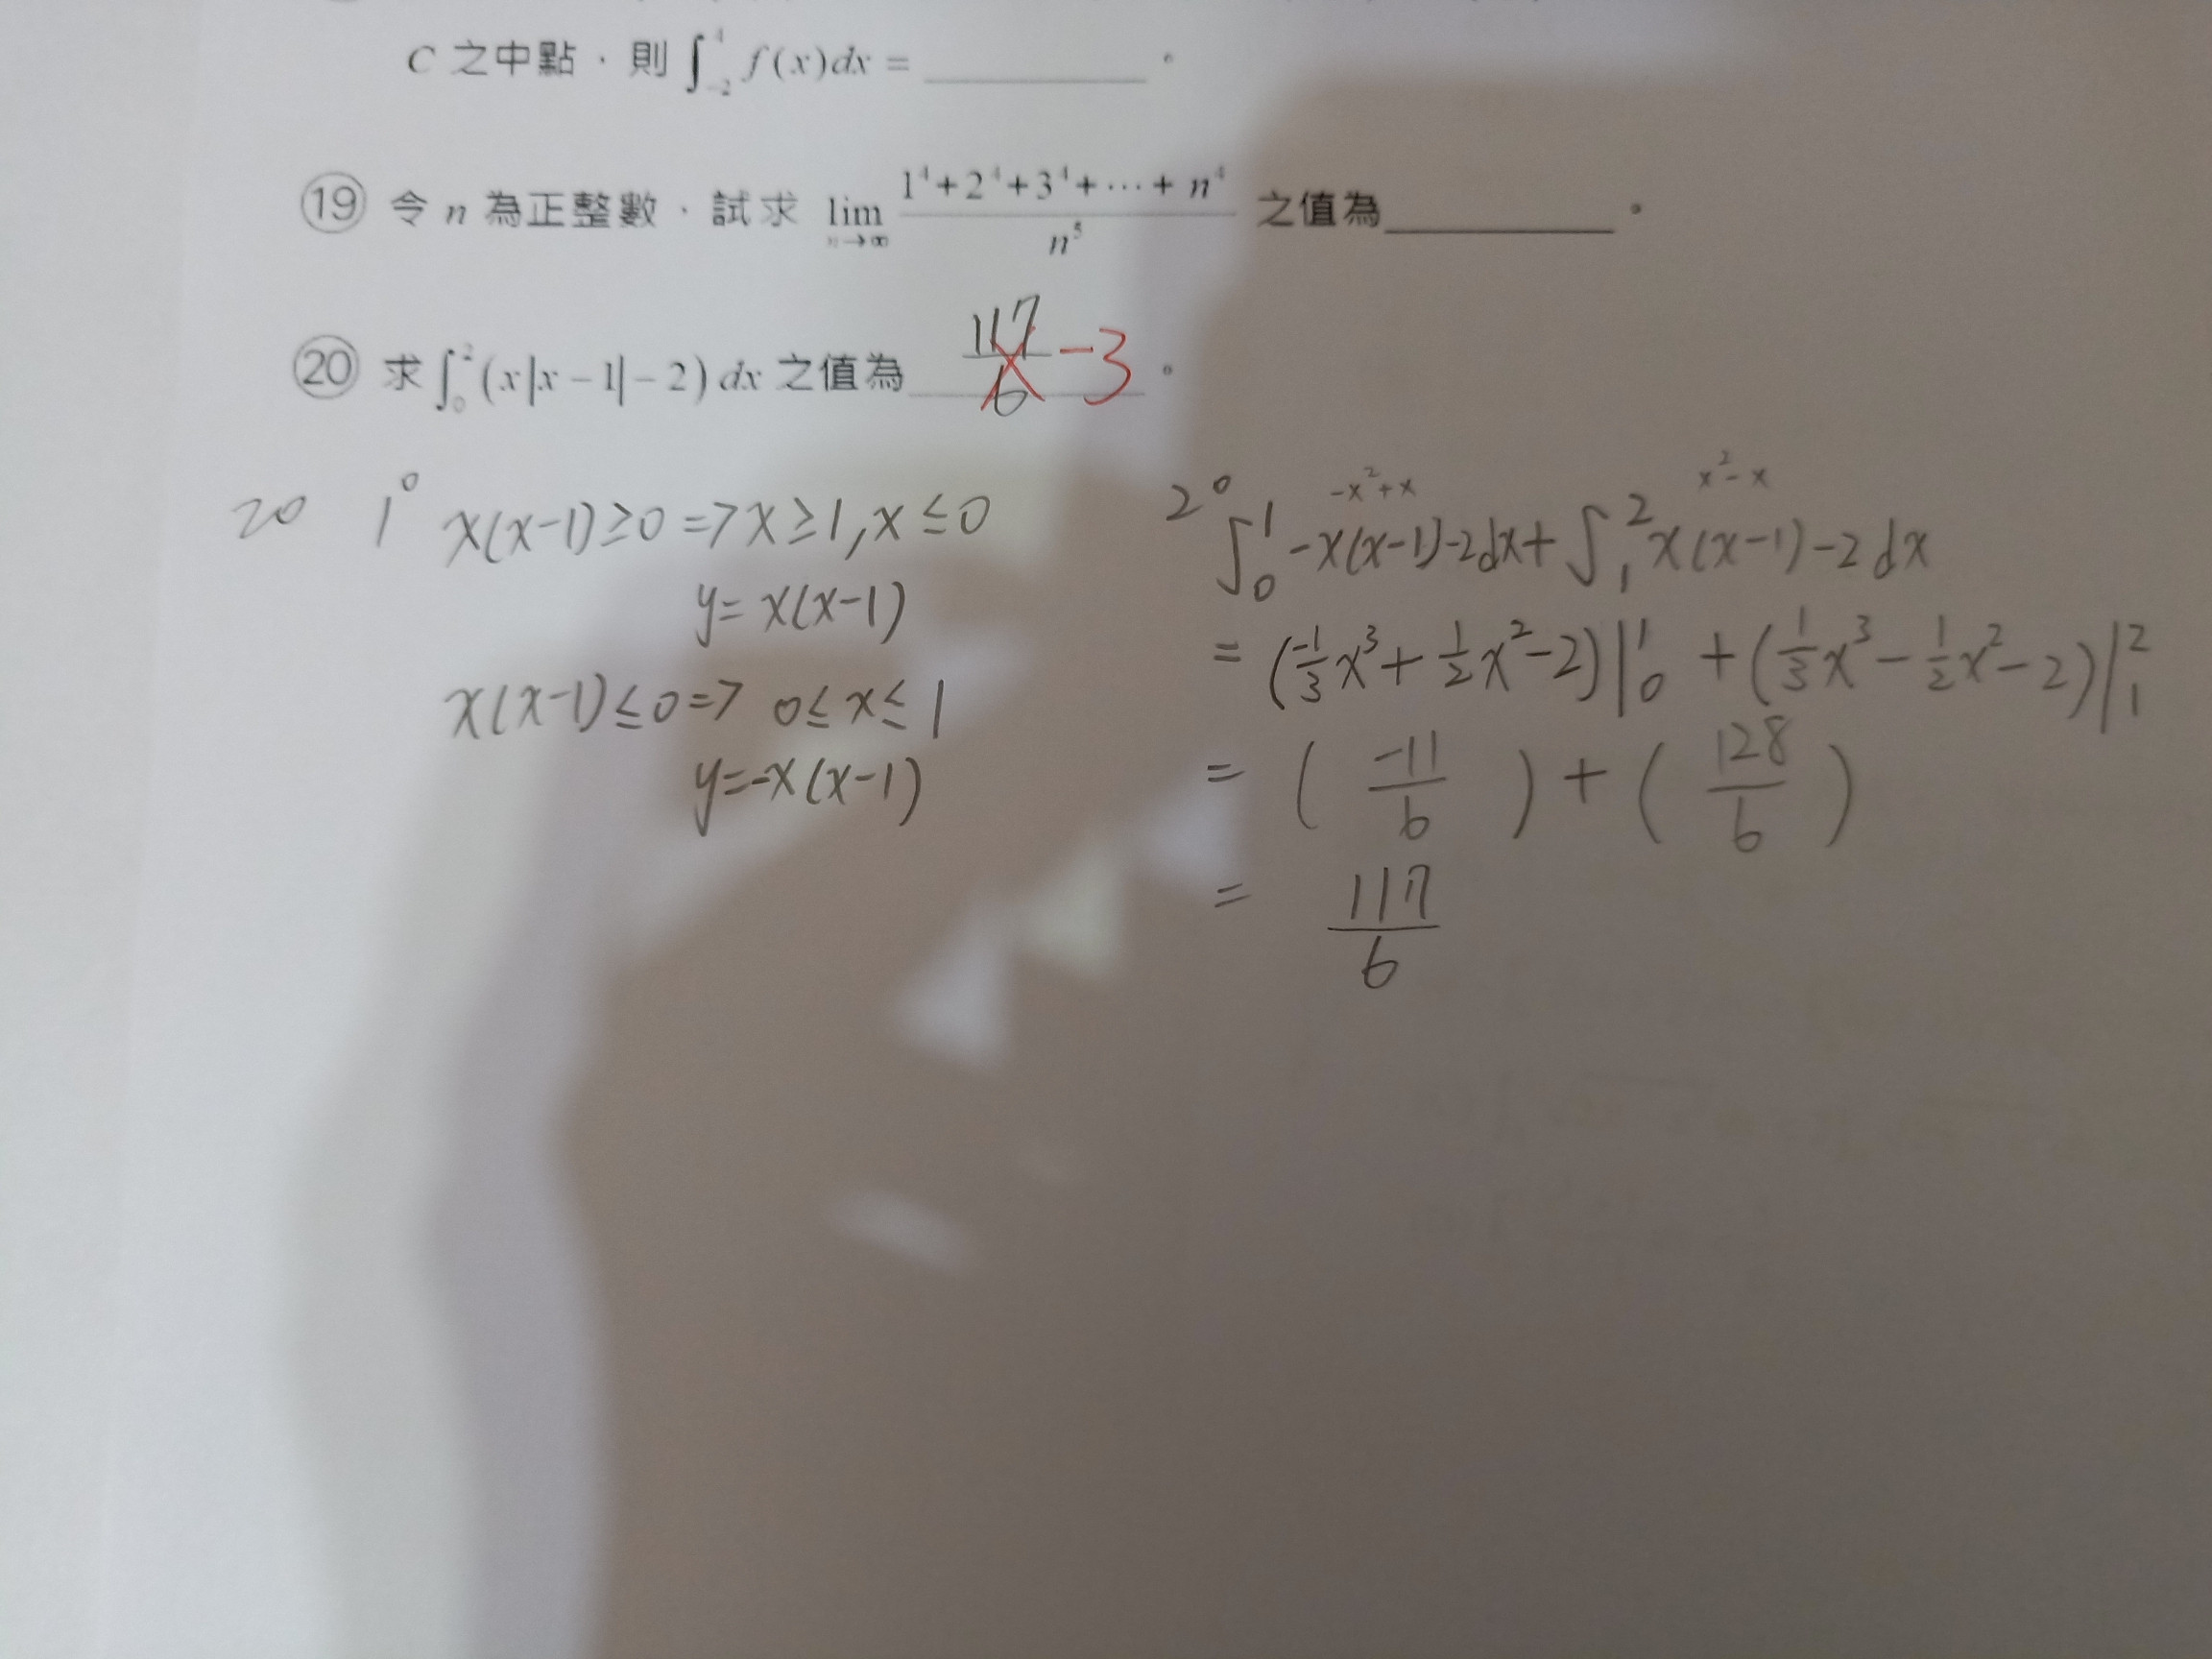 C 之中點，則 ∫_{-2}^{4} f(x)dx = ________ 。
⑲ 令 n 為正整數，試求 lim_{n→∞} (1⁴+2⁴+3⁴+⋯+n⁴)/n⁵ 之值為________。
⑳ 求 ∫_0^2 (x|x-1|-2) dx 之值為 117/6 -3 。
20 1° x(x-1)≥0 => x≥1, x≤0
y= x(x-1)
x(x-1)≤0 => 0≤x≤1
y=-x(x-1)
-x²+x x²-x
2° ∫_0^1 -x(x-1)-2dx+∫_1^2 x(x-1)-2dx
= (-1/3 x³+1/2 x²-2)|_0^1 + (1/3 x³-1/2 x²-2)|_1^2
= (-11/6) + (128/6)
= 117/6